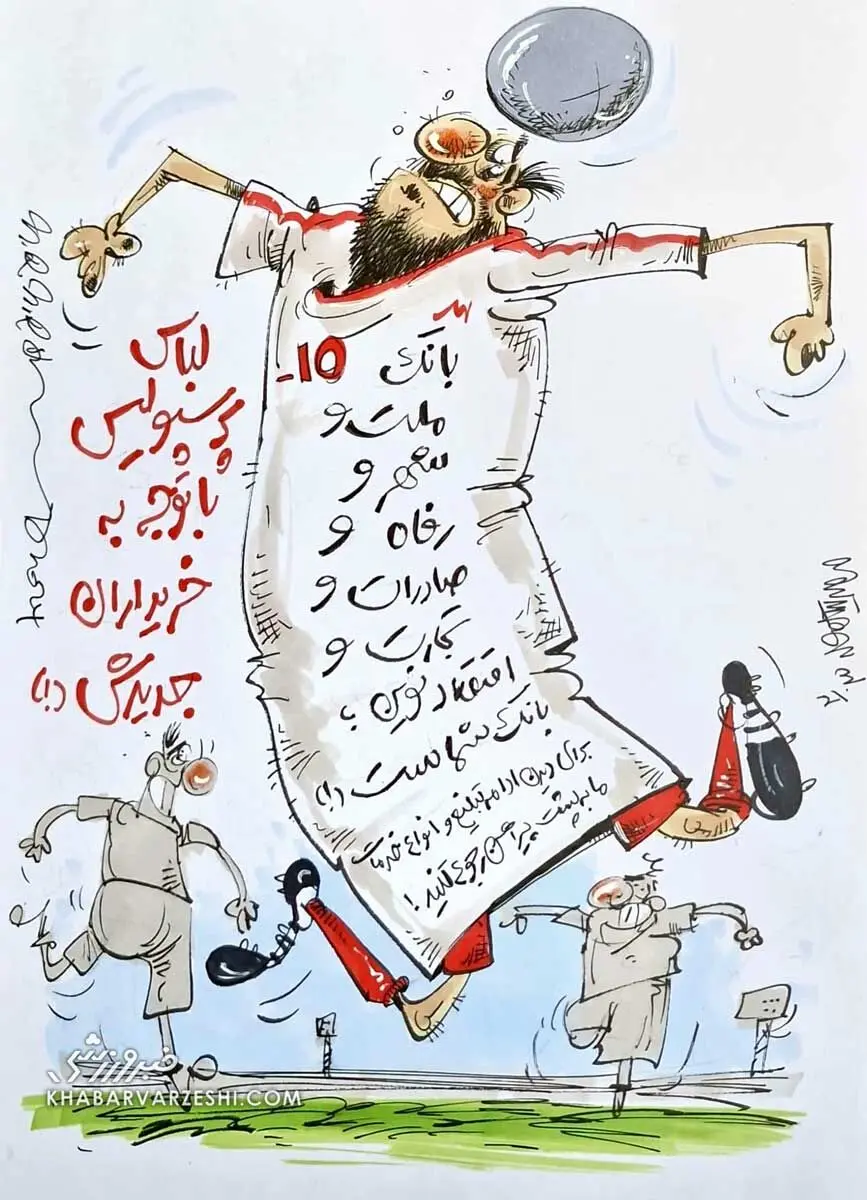 لباس
پرسپولیس
با توجه به
خریداران
جدیدش (!)
10-
بانک
ملت و
شهر و
رفاه و
صادرات و
تجارت و
اقتصاد نوین ؛
بانک شماست (!)
برای دیدن ادامه تبلیغ و انواع خدمات
ما به پشت پیراهن رجوع کنید !
خبرورزشی
KHABARVARZESHI.COM